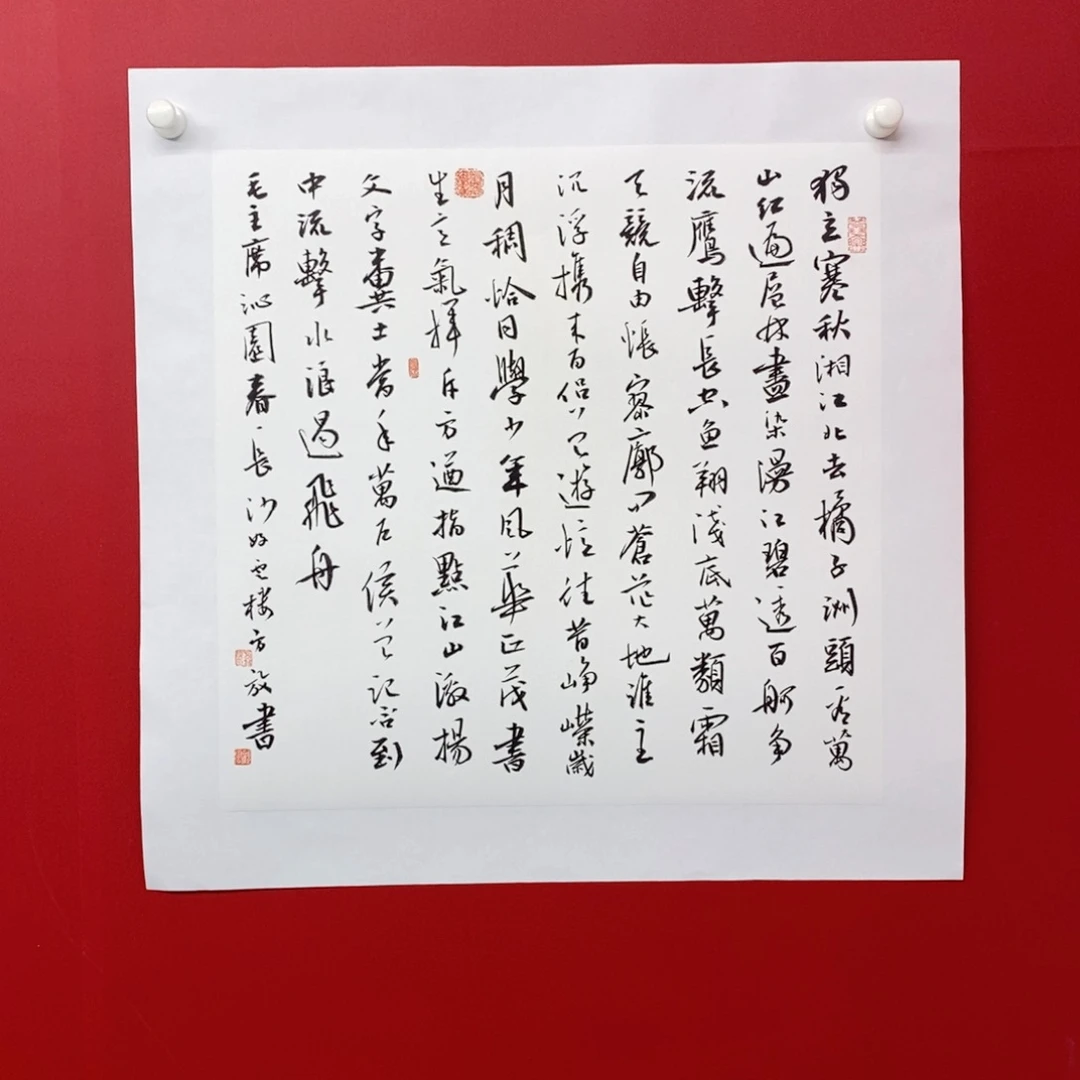 獨立寒秋湘江北去橘子洲頭看萬
山紅遍層林盡染漫江碧透百舸爭
流鷹擊長空魚翔淺底萬類霜
天競自由悵寥廓問蒼茫大地誰主
沉浮攜來百侶曾遊憶往昔崢嶸歲
月稠恰同學少年風華正茂書
生意氣揮斥方遒指點江山激揚
文字糞土當年萬戶侯曾記否到
中流擊水浪遏飛舟
毛主席沁園春長沙好雲樓方放書